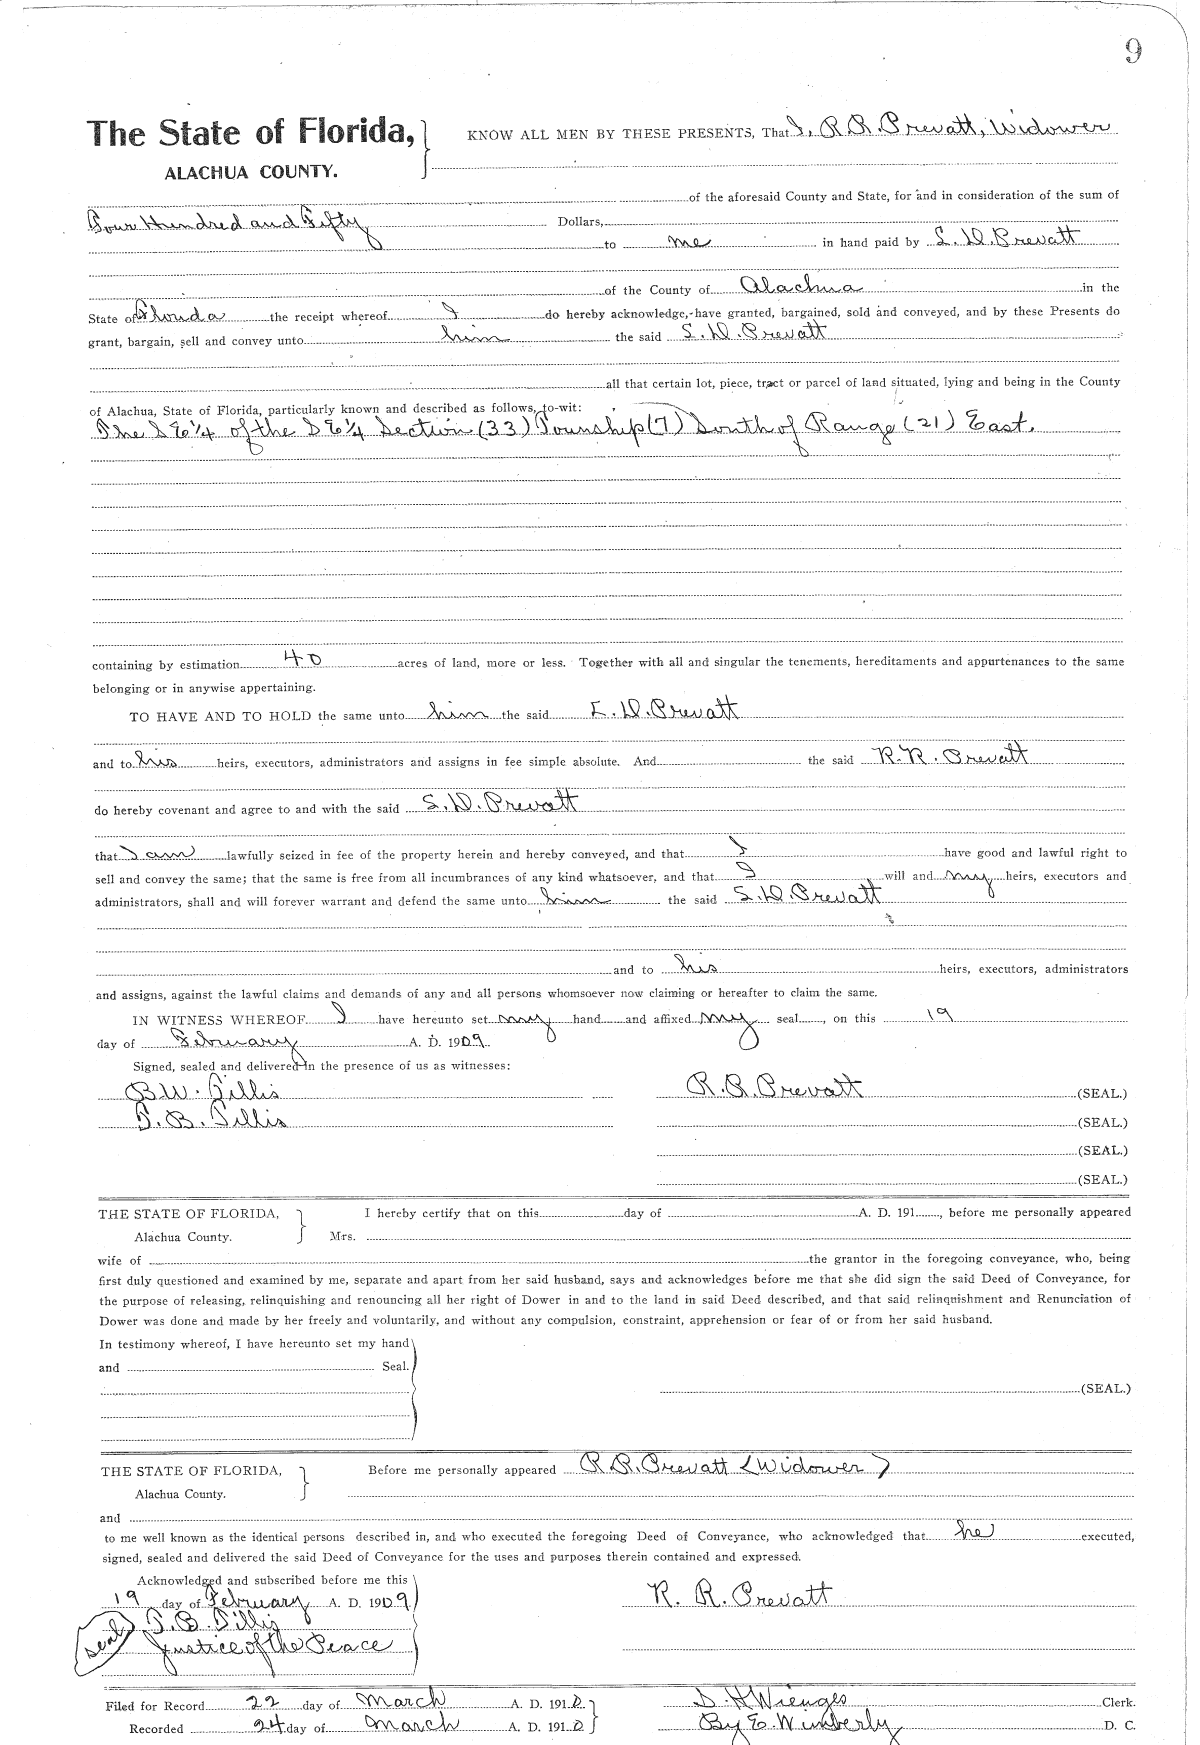 9
The State of Florida, KNOW ALL MEN BY THESE PRESENTS, That I, R. R. Prevatt, Widower
ALACHUA COUNTY.
of the aforesaid County and State, for and in consideration of the sum of
Four Hundred and Fifty Dollars,
to me in hand paid by S. D. Prevatt
of the County of Alachua in the
State of Florida the receipt whereof I do hereby acknowledge, have granted, bargained, sold and conveyed, and by these Presents do
grant, bargain, sell and convey unto him the said S. D. Prevatt
all that certain lot, piece, tract or parcel of land situated, lying and being in the County
of Alachua, State of Florida, particularly known and described as follows, to-wit:
The S E ¼ of the S E ¼ Section (33) Township (7) South of Range (21) East.
containing by estimation 40 acres of land, more or less. Together with all and singular the tenements, hereditaments and appurtenances to the same
belonging or in anywise appertaining.
TO HAVE AND TO HOLD the same unto him the said S. D. Prevatt
and to his heirs, executors, administrators and assigns in fee simple absolute. And the said R. R. Prevatt
do hereby covenant and agree to and with the said S. D. Prevatt
that I am lawfully seized in fee of the property herein and hereby conveyed, and that I have good and lawful right to
sell and convey the same; that the same is free from all incumbrances of any kind whatsoever, and that I will and my heirs, executors and
administrators, shall and will forever warrant and defend the same unto him the said S. D. Prevatt
and to his heirs, executors, administrators
and assigns, against the lawful claims and demands of any and all persons whomsoever now claiming or hereafter to claim the same.
IN WITNESS WHEREOF I have hereunto set my hand and affixed my seal, on this 19
day of February A. D. 1909.
Signed, sealed and delivered in the presence of us as witnesses:
B. W. Tillis R. R. Prevatt (SEAL.)
T. B. Tillis (SEAL.)
(SEAL.)
(SEAL.)
THE STATE OF FLORIDA, I hereby certify that on this day of A. D. 191 , before me personally appeared
Alachua County. Mrs.
wife of the grantor in the foregoing conveyance, who, being
first duly questioned and examined by me, separate and apart from her said husband, says and acknowledges before me that she did sign the said Deed of Conveyance, for
the purpose of releasing, relinquishing and renouncing all her right of Dower in and to the land in said Deed described, and that said relinquishment and Renunciation of
Dower was done and made by her freely and voluntarily, and without any compulsion, constraint, apprehension or fear of or from her said husband.
In testimony whereof, I have hereunto set my hand
and Seal.
(SEAL.)
THE STATE OF FLORIDA, Before me personally appeared R. R. Prevatt (Widower)
Alachua County.
and
to me well known as the identical persons described in, and who executed the foregoing Deed of Conveyance, who acknowledged that he executed,
signed, sealed and delivered the said Deed of Conveyance for the uses and purposes therein contained and expressed.
Acknowledged and subscribed before me this
19 day of February A. D. 1909 R. R. Prevatt
T. B. Tillis
Seal Justice of the Peace
Filed for Record 22 day of March A. D. 1910 D. H Wienges Clerk.
Recorded 24 day of March A. D. 1910 By E. Wimberly D. C.